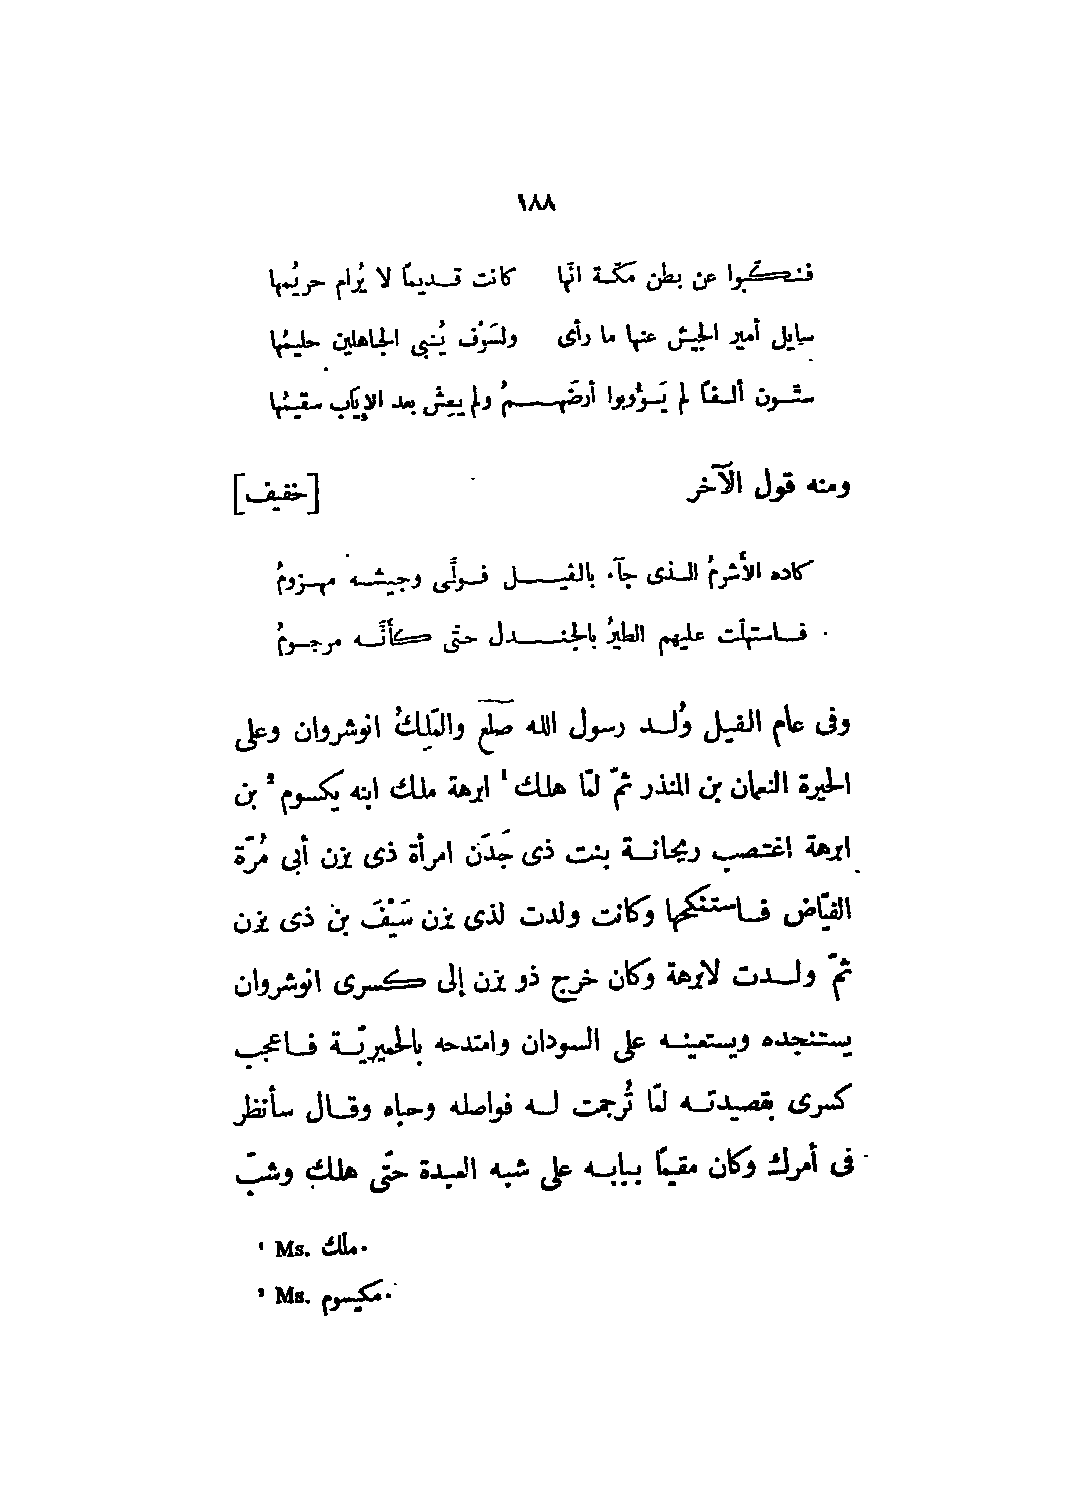 ١٨٨
فنكّبوا عن بطن مكّة انّها كانت قديمًا لا يُرام حريُمها
سايل أمير الجيش عنها ما رأى ولسَوْف يُنبى الجاهلين حليمُها
ستّون ألفًا لم يَؤوبوا أرضَهمُ ولم يعِش بعد الإياب سقيمُها
ومنه قول الآخر [خفيف]
كاده الأشرمُ الذى جآء بالفيل فولَّى وجيشه مهزومُ
فاستهلّت عليهم الطيرُ بالجندل حتّى كأنَّه مرجومُ
وفى عام الفيل وُلد رسول الله صلعَ والمَلِكُ انوشروان وعلى
الحيرة النعمان بن المنذر ثمّ لمّا هلك ¹ ابرهة ملك ابنه يكسوم ² بن
ابرهة اغتصب ريحانة بنت ذى جَدَن امرأة ذى يزن أبى مُرّة
الفيّاض فاستنكحها وكانت ولدت لذى يزن سَيْفَ بن ذى يزن
ثمّ ولدت لابرهة وكان خرج ذو يزن إلى كسرى انوشروان
يستنجده ويستعينه على السودان وامتدحه بالحميريّة فاعجب
كسرى بقصيدته لمّا تُرجمت له فواصله وحباه وقال سأنظر
فى أمرك وكان مقيمًا ببابه على شبه العِدة حتّى هلك وشبّ
¹ Ms. ملك.
² Ms. مكيسوم.